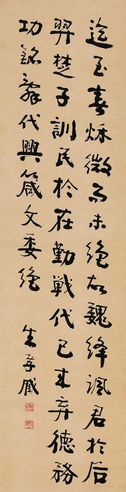 迄至春秋微而未絕故魏絳諷君於后
羿楚子訓民於在勤戰代已來棄德務
功銘辭代興箴文委絕
朱孝臧